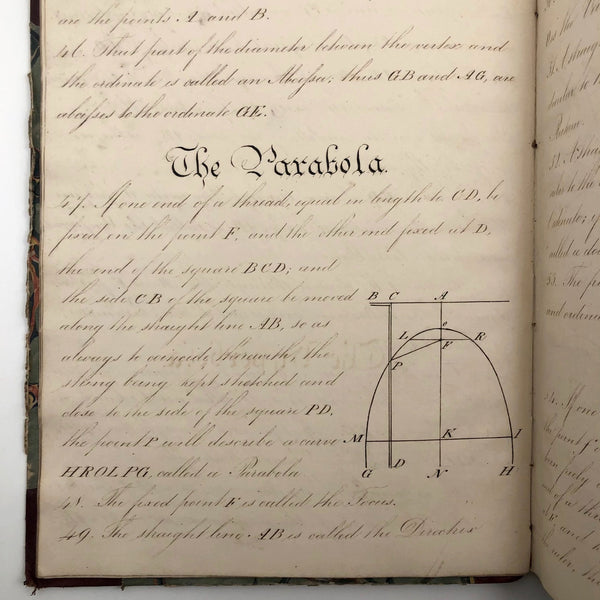 are the points A and B.
46. That part of the diameter between the vertex and
the ordinate is called an Abcissa; thus GB and AG, are
abcisses to the ordinate GE.
The Parabola.
47. If one end of a thread, equal in length to CD, be
fixed on the point F, and the other end fixed at D,
the end of the square BCD; and
the side CB of the square be moved
along the straight line AB, so as
always to coincide therewith, the
string being kept stretched and
close to the side of the square PD,
the point P will describe a curve
HROLPG, called a Parabola
48. The fixed point F is called the Focus.
49. The straight line AB is called the Directrix
B C A
L o R
F
P
M K I
G D N H
as the
31. A straight
similar to
32. A th
also to the
Ordinate;
called a dou
33. The
and ordina
34. If one
the point